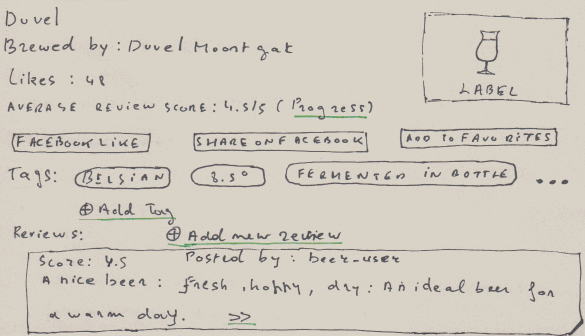 Duvel
Brewed by : Duvel Moortgat
Likes : 48
AVERAGE REVIEW SCORE: 4.5/5 (Progress)
LABEL
FACEBOOK LIKE
SHARE ON FACEBOOK
ADD TO FAVORITES
Tags: BELGIAN 8.5° FERMENTED IN BOTTLE ...
⊕ Add Tag
Reviews: ⊕ Add new review
Score: 4.5 Posted by : beer-user
A nice beer : fresh, hoppy, dry : An ideal beer for
a warm day. >>